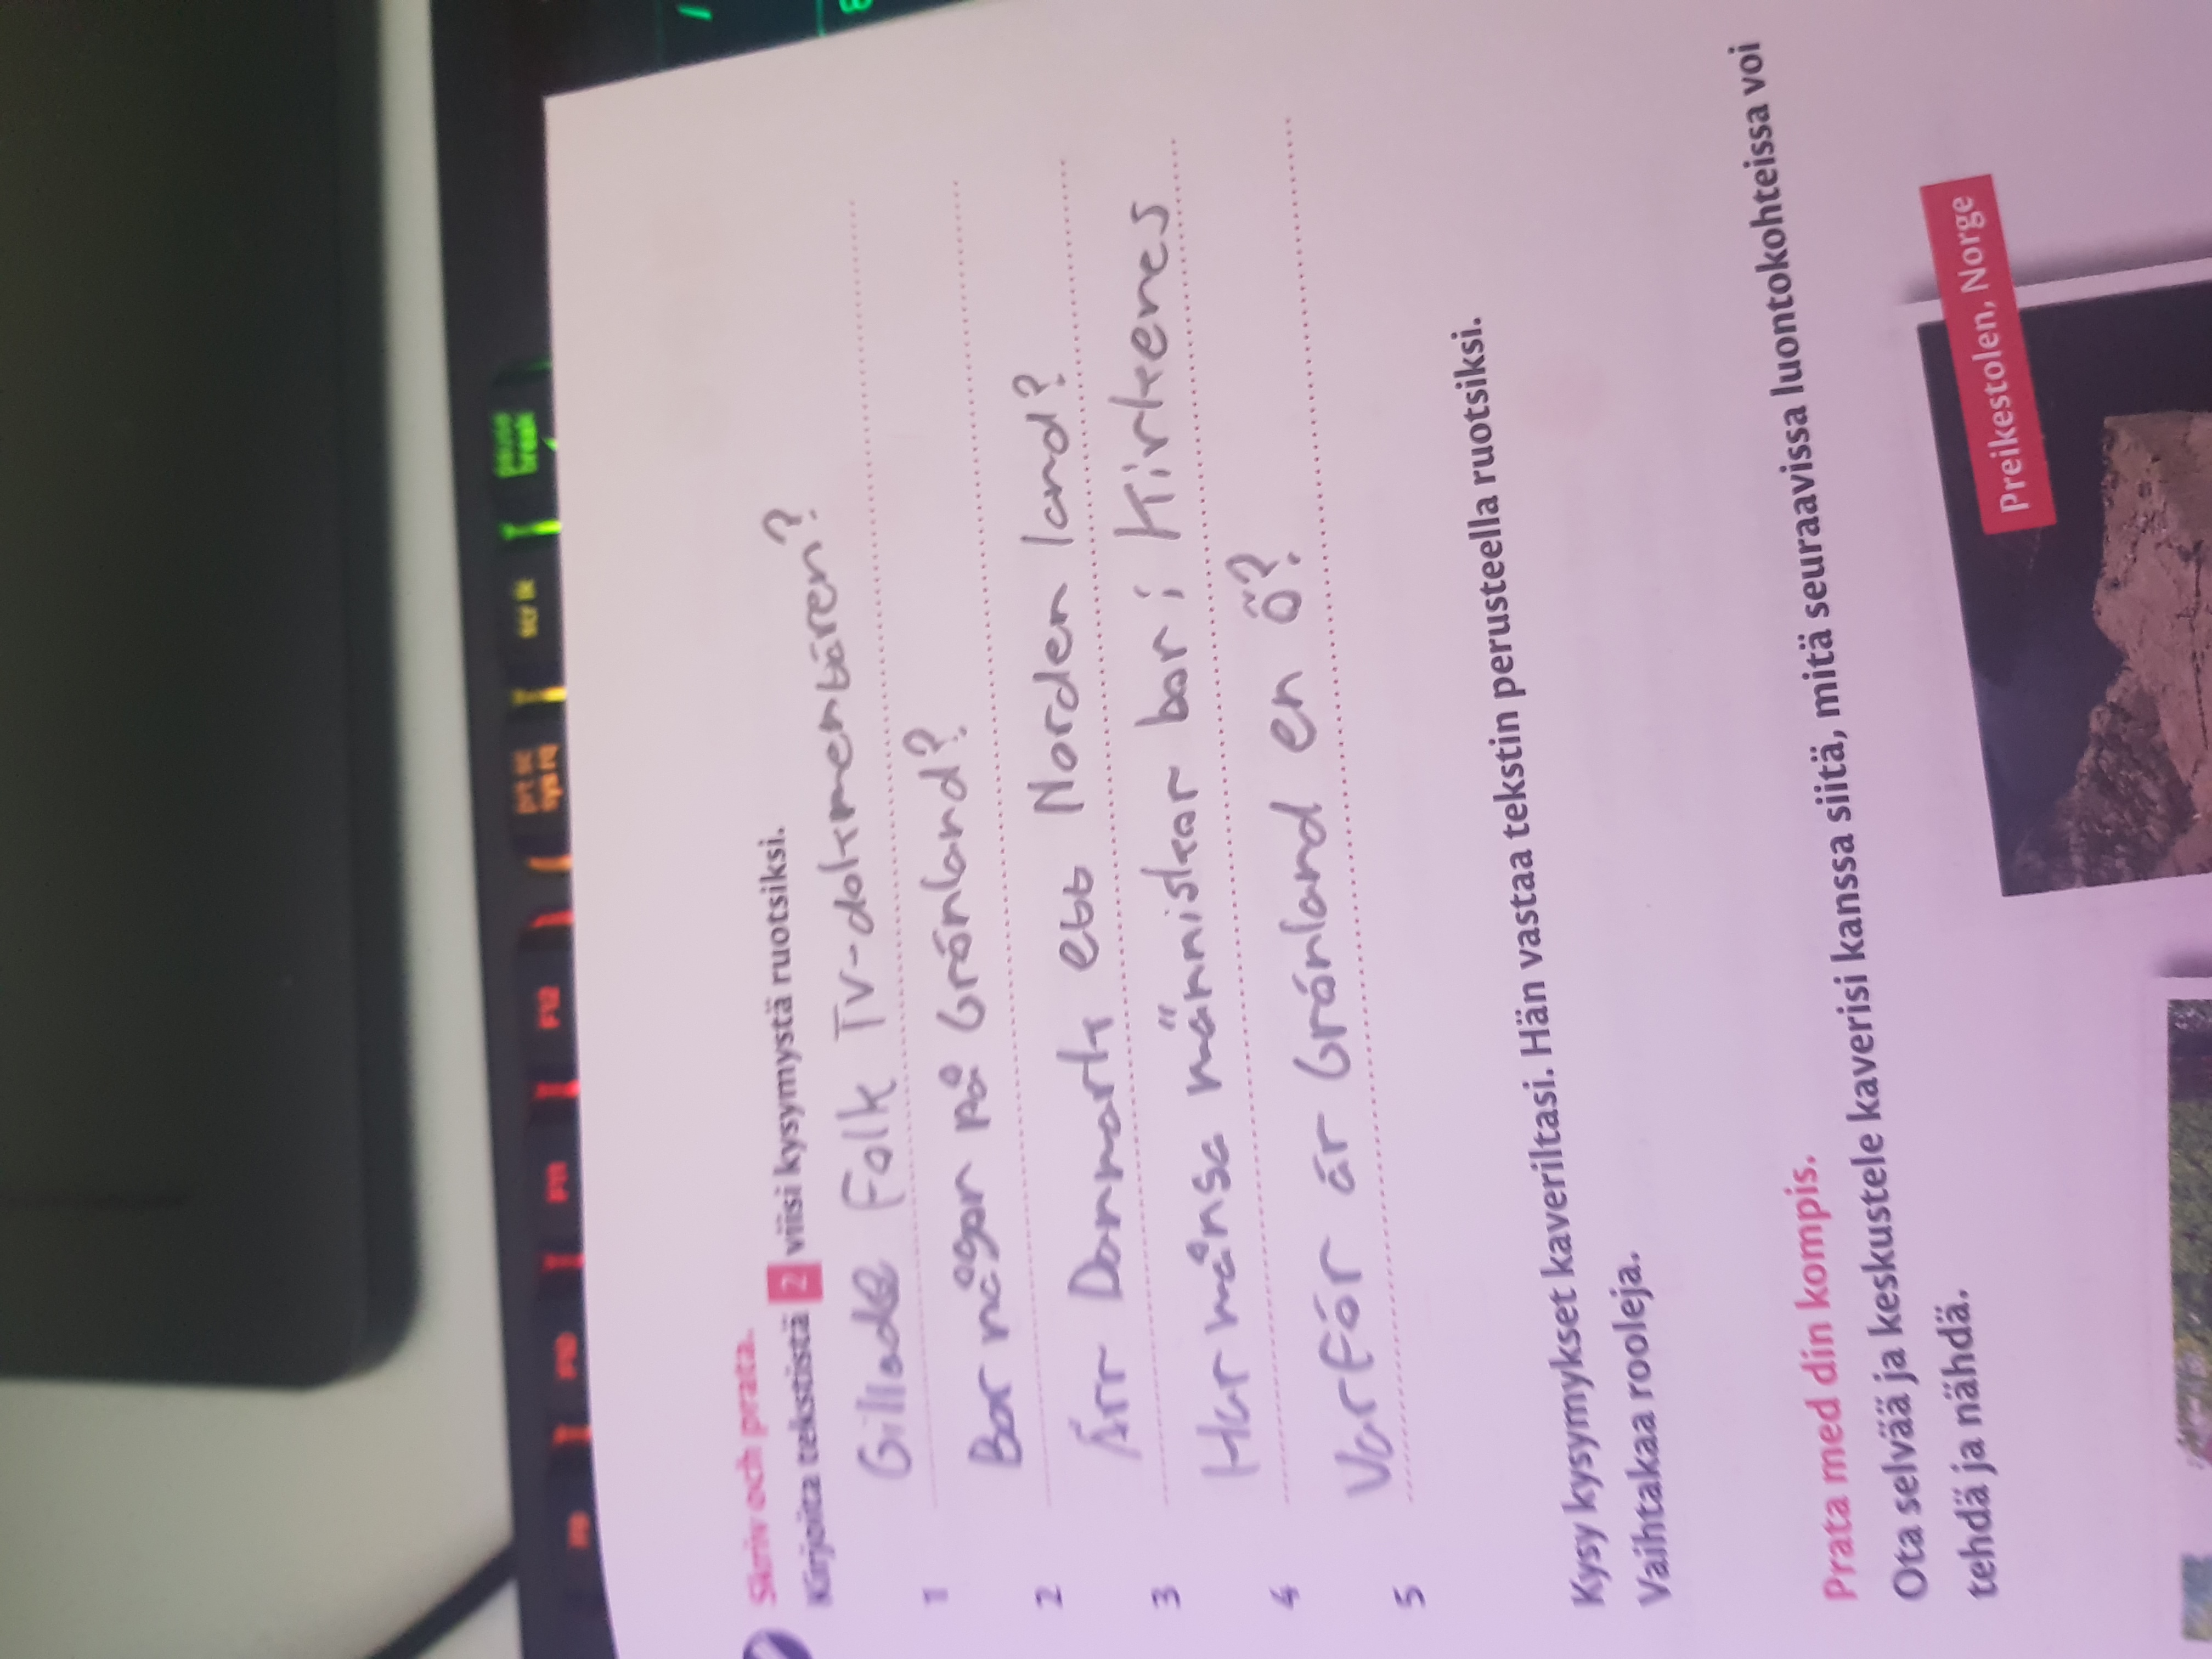 pause break
scr lk
prt sc sys rq
F12
F11
F10
F9
8
/
Skriv och prata.
Kirjoita tekstistä 2 viisi kysymystä ruotsiksi.
1 Gillade Folk Tv-dokumentären?
2 Bor någon på Grönland?
3 Ärr Danmark ett Norden land?
4 Hur månsa människor bor i Kirkenes
5 Varför är Grönland en ö?
Kysy kysymykset kaveriltasi. Hän vastaa tekstin perusteella ruotsiksi.
Vaihtakaa rooleja.
Prata med din kompis.
Ota selvää ja keskustele kaverisi kanssa siitä, mitä seuraavissa luontokohteissa voi
tehdä ja nähdä.
Preikestolen, Norge